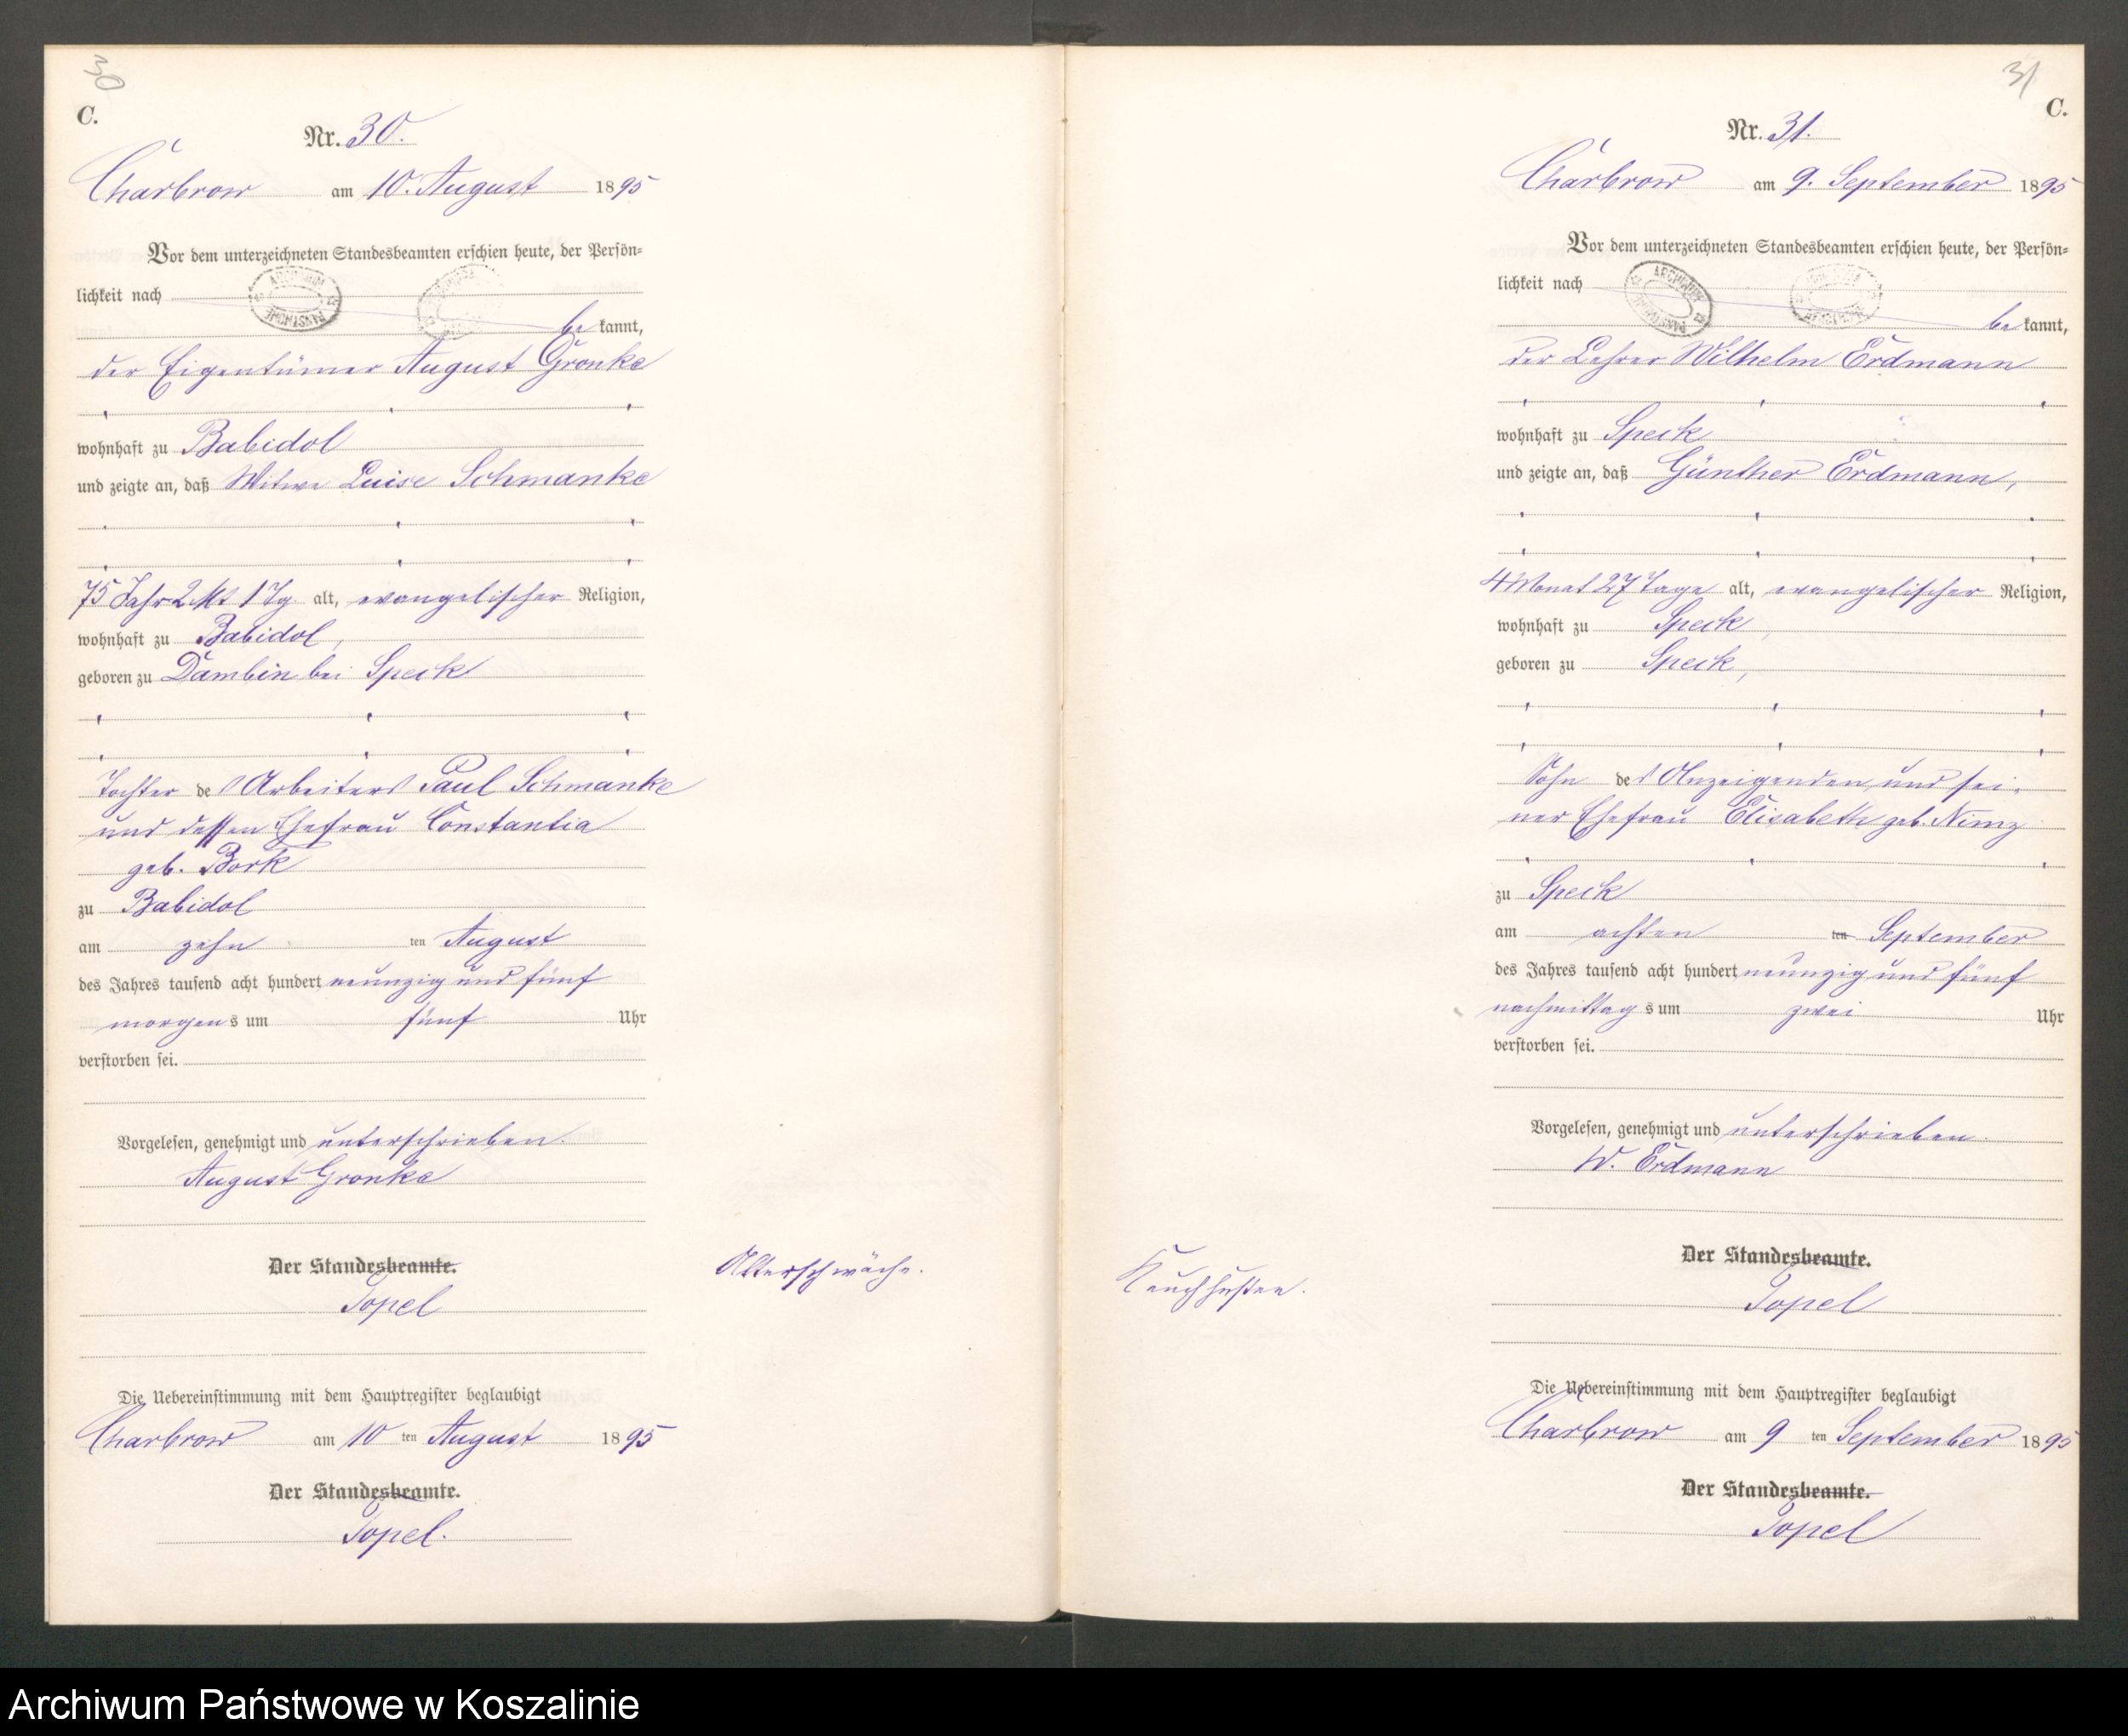 30
C.
Nr. 30.
Charbrow am 10. August 1895
Vor dem unterzeichneten Standesbeamten erschien heute, der Persön=
lichkeit nach
be kannt,
der Eigentümer August Gronke
wohnhaft zu Babidol
und zeigte an, daß Witwe Luise Schmanke
75 Jahr 2 Mt 1 Tg alt, evangelischer Religion,
wohnhaft zu Babidol,
geboren zu Dambin bei Speck
Tochter des Arbeiters Paul Schmanke
und dessen Ehefrau Constantia
geb. Bork
zu Babidol
am zehn ten August
des Jahres tausend acht hundert neunzig und fünf
morgens um fünf Uhr
verstorben sei.
Vorgelesen, genehmigt und unterschrieben.
August Gronke
Der Standesbeamte.
Topel
Altersschwäche.
Die Uebereinstimmung mit dem Hauptregister beglaubigt
Charbrow am 10 ten August 1895
Der Standesbeamte.
Topel.
31
C.
Nr. 31.
Charbrow am 9. September 1895
Vor dem unterzeichneten Standesbeamten erschien heute, der Persön=
lichkeit nach
be kannt,
der Lehrer Wilhelm Erdmann
wohnhaft zu Speck
und zeigte an, daß Günther Erdmann,
4 Monat 27 Tage alt, evangelischer Religion,
wohnhaft zu Speck,
geboren zu Speck,
Sohn des Anzeigenden und sei-
ner Ehefrau Elisabeth geb. Nimz
zu Speck
am achten ten September
des Jahres tausend acht hundert neunzig und fünf
nachmittags um zwei Uhr
verstorben sei.
Vorgelesen, genehmigt und unterschrieben.
W. Erdmann
Der Standesbeamte.
Topel
Keuchhusten.
Die Uebereinstimmung mit dem Hauptregister beglaubigt
Charbrow am 9 ten September 1895
Der Standesbeamte.
Topel
Archiwum Państwowe w Koszalinie